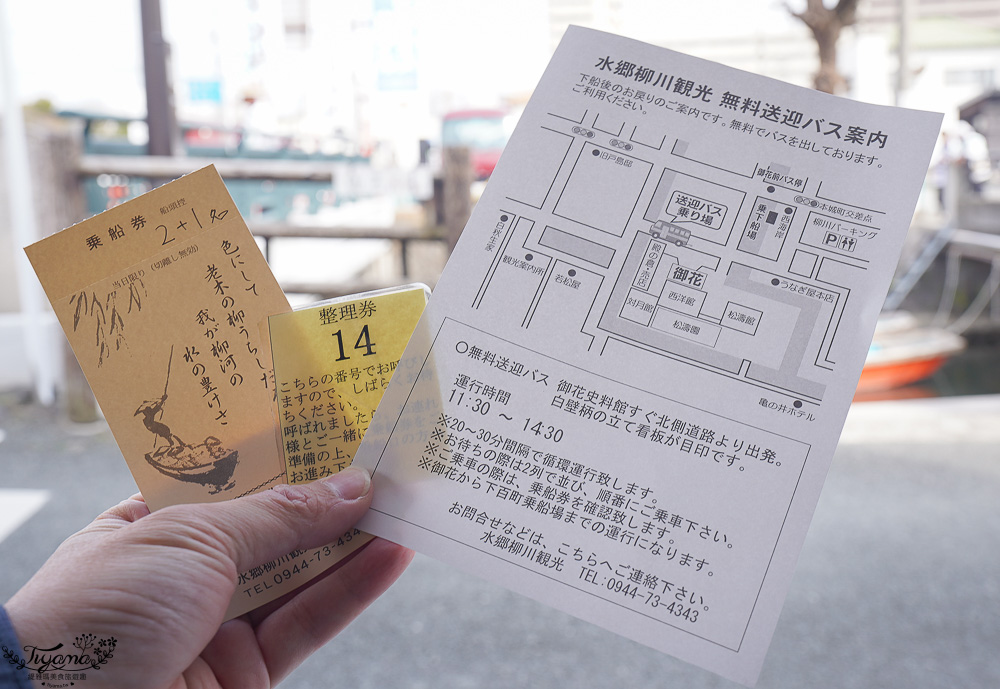 乗船券
船頭控
2+1名
当日限り(切離し無効)
色にして
老木の柳うちし
我が柳河の
水の豊けさ
水郷柳川観
TEL0944-73-434
整理券
14
こちらの番号でお呼
ますので、しばら
ちください。
呼ばれましたら
様とご一緒に
準備の上、
お進み下
水郷柳川観光 無料送迎バス案内
下船後のお戻りのご案内です。無料でバスを出しております。
ご利用ください。
旧戸島邸
御花前バス停
送迎バス
乗り場
乗下船場
西海岸
本城町交差点
柳川パーキング
P
白秋生家
観光案内所
若松屋
殿の倉・売店
御花
西洋館
対月館
松濤園
松濤館
うなぎ屋本店
亀の井ホテル
〇無料送迎バス 御花史料館すぐ北側道路より出発。
白壁柄の立て看板が目印です。
運行時間
11:30 ~ 14:30
※20~30分間隔で循環運行致します。
※お待ちの際は2列で並び、順番にご乗車下さい。
※ご乗車の際は、乗船券を確認致します。
※御花から下百町乗船場までの運行になります。
お問合せなどは、こちらへご連絡下さい。
水郷柳川観光 TEL:0944-73-4343
Tiyama